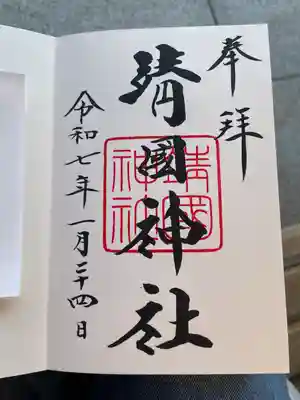 奉拝
靖國神社
靖國神社
令和七年一月二十四日